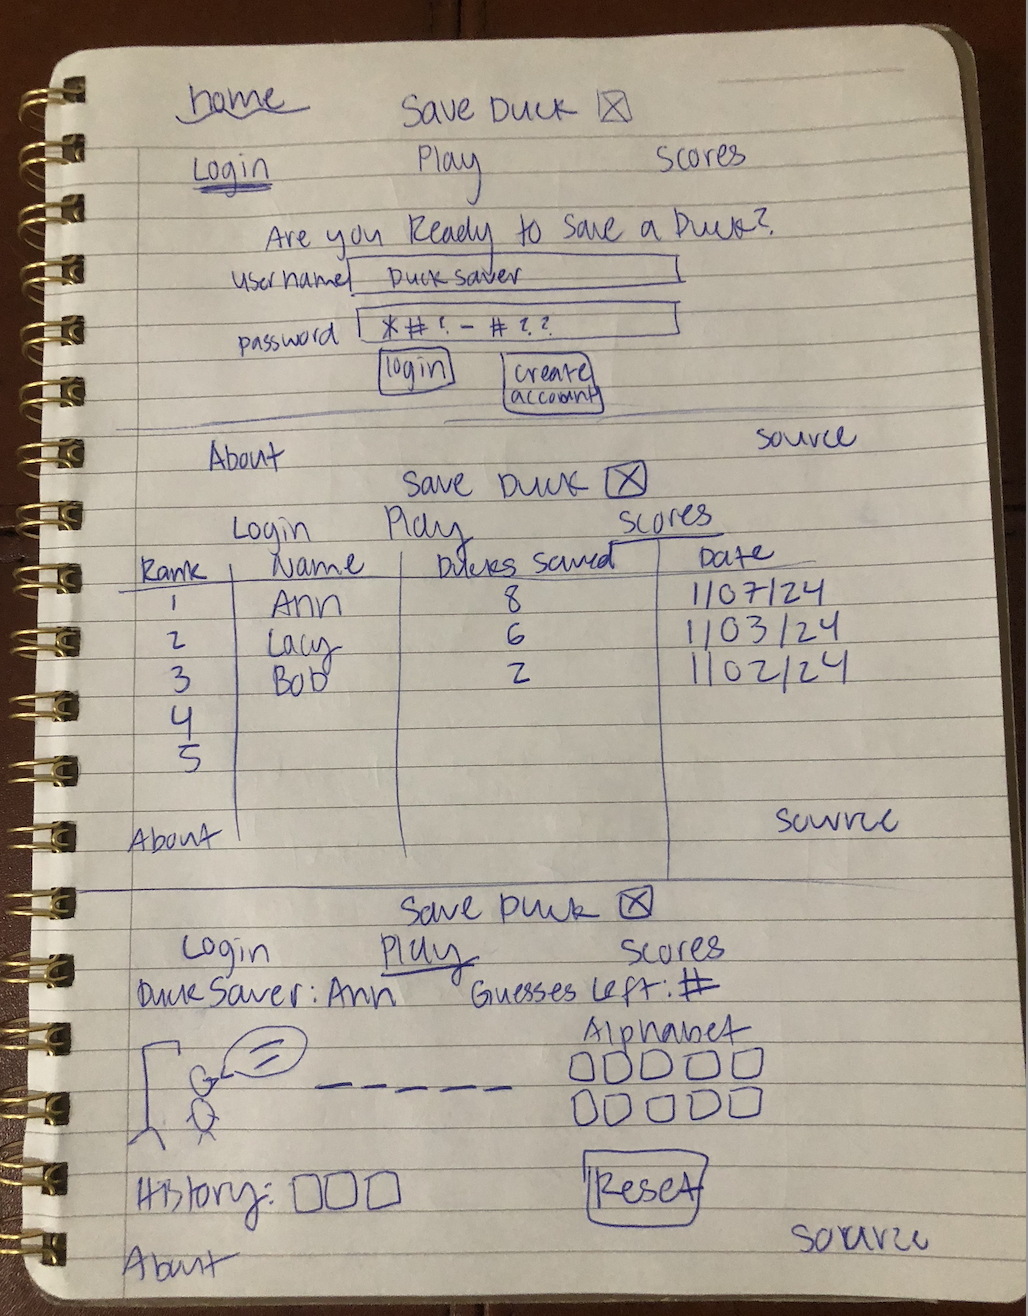 home
Save Duck
Login Play Scores
Are you Ready to Save a Duck?
username Duck saver
password *#?-#??
login create account
About source
Save Duck
Login Play Scores
Rank Name Ducks Saved Date
1 Ann 8 1/07/24
2 Lacy 6 1/03/24
3 Bob 2 1/02/24
4
5
About source
Save Duck
Login Play Scores
Duck Saver: Ann Guesses Left: #
Alphabet
History: Reset
About source